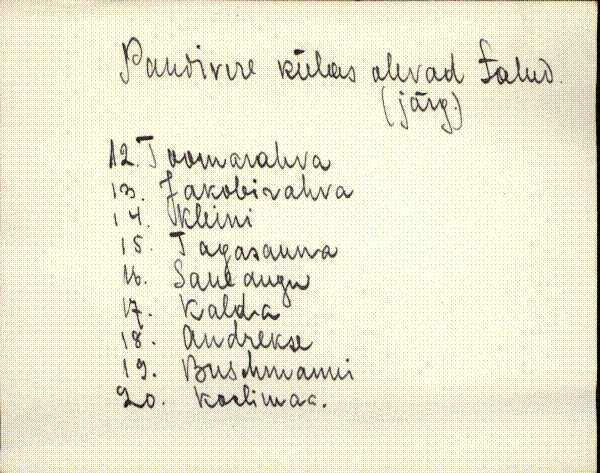 Pandivere külas olevad talud.
(järg)
12. Toomarahva
13. Jakobirahva
14. Kleini
15. Tagasauna
16. Saueaugu
17. Kaldra
18. Andrekse
19. Buschmanni
20. Koolimaa.